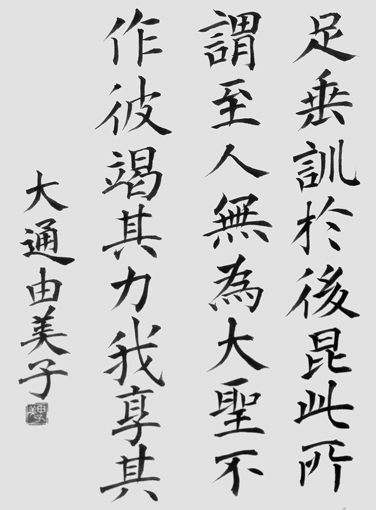 足垂訓於後昆此所
謂至人無為大聖不
作彼竭其力我享其
大通由美子